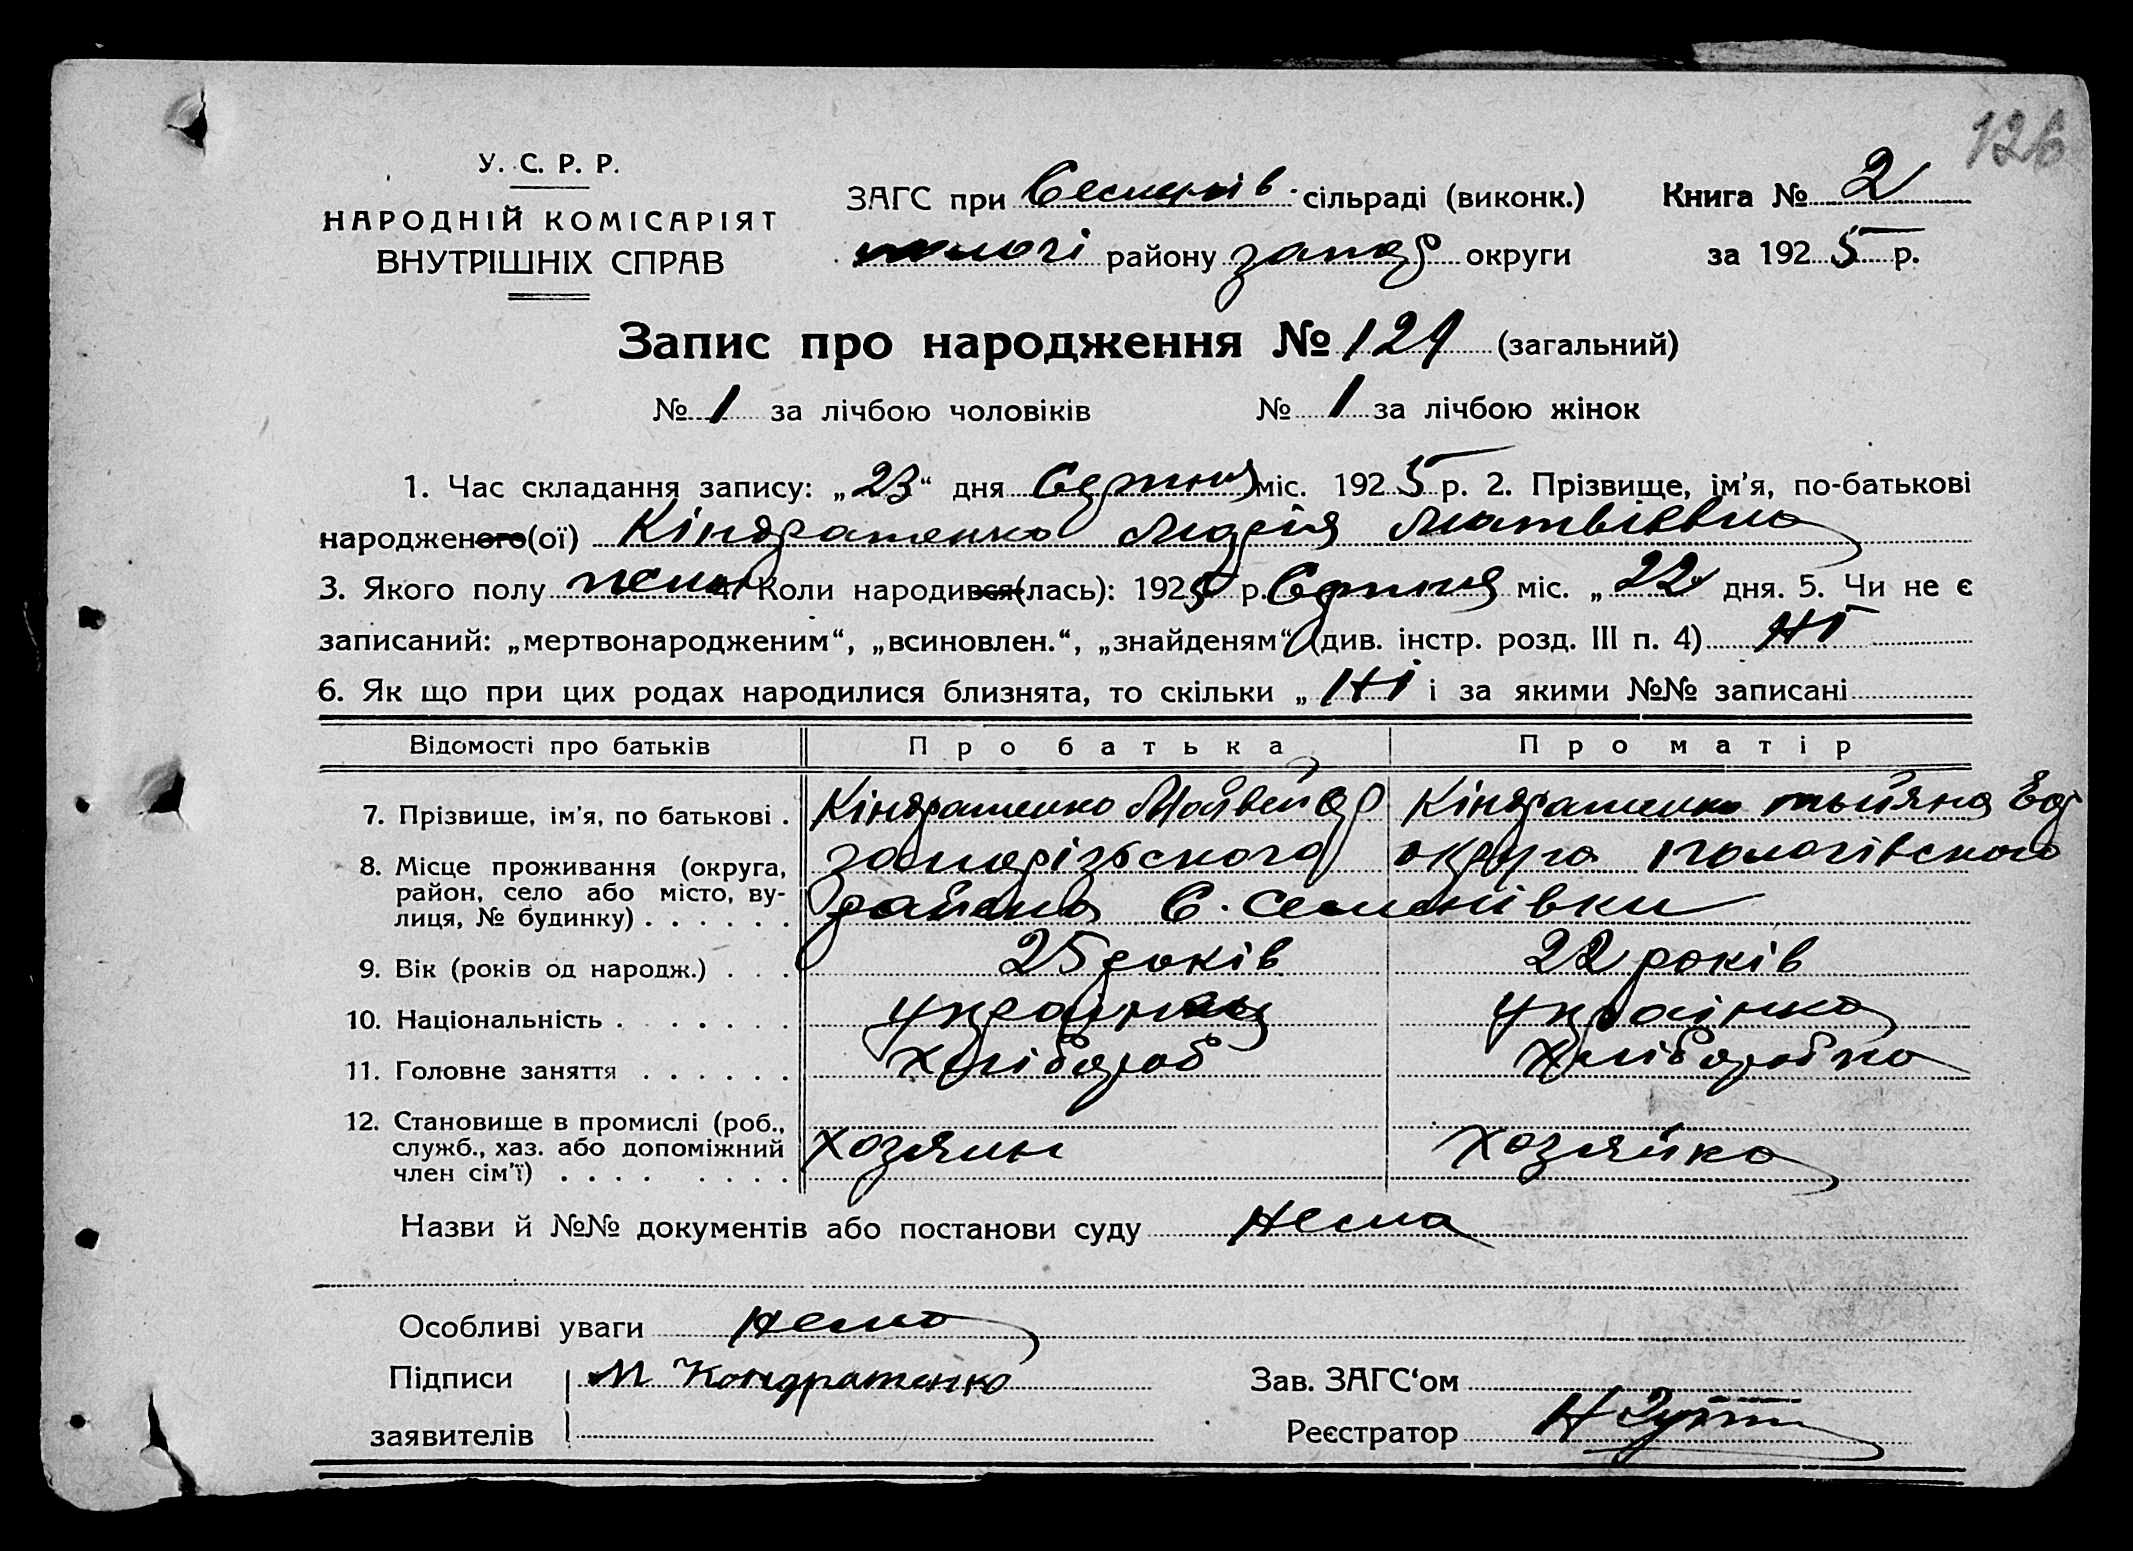 126
У. С. Р. Р.
НАРОДНІЙ КОМІСАРІЯТ
ВНУТРІШНІХ СПРАВ
ЗАГС при сільраді (виконк.)
району запор округи
Книга № 2
за 1925 р.
Запис про народження № 124 (загальний)
№ 1 за лічбою чоловіків № 1 за лічбою жінок
1. Час складання запису: „23“ дня Серпня міс. 1925 р. 2. Прізвище, ім'я, по-батькові
народженого(ої) Кіндратенко Марія Матвієвна
3. Якого полу жен 4. Коли народився(лась): 1925 р. Серпня міс. „22“ дня. 5. Чи не є
записаний: „мертвонародженим“, „всиновлен.“, „знайденям“ (див. інстр. розд. III п. 4) Ні
6. Як що при цих родах народилися близнята, то скільки „ Ні і за якими №№ записані
Відомості про батьків Про батька Про матір
7. Прізвище, ім'я, по батькові . Кіндратенко Матвей Кіндратенко
8. Місце проживання (округа, запорізьского округа пологівского
район, село або місто, ву-
лиця, № будинку) . . . . . . району С. Семенівки
9. Вік (років од народж.) . . . 25 років 22 років
10. Національність . . . . . . . українец українка
11. Головне заняття . . . . . . хлібороб хліборобка
12. Становище в промислі (роб.,
служб., хаз. або допоміжний хозяин хозяйка
член сім'ї) . . . . . . . .
Назви й №№ документів або постанови суду Нема
Особливі уваги Нема
Підписи М Кондратенко Зав. ЗАГС‘ом
заявителів Реєстратор